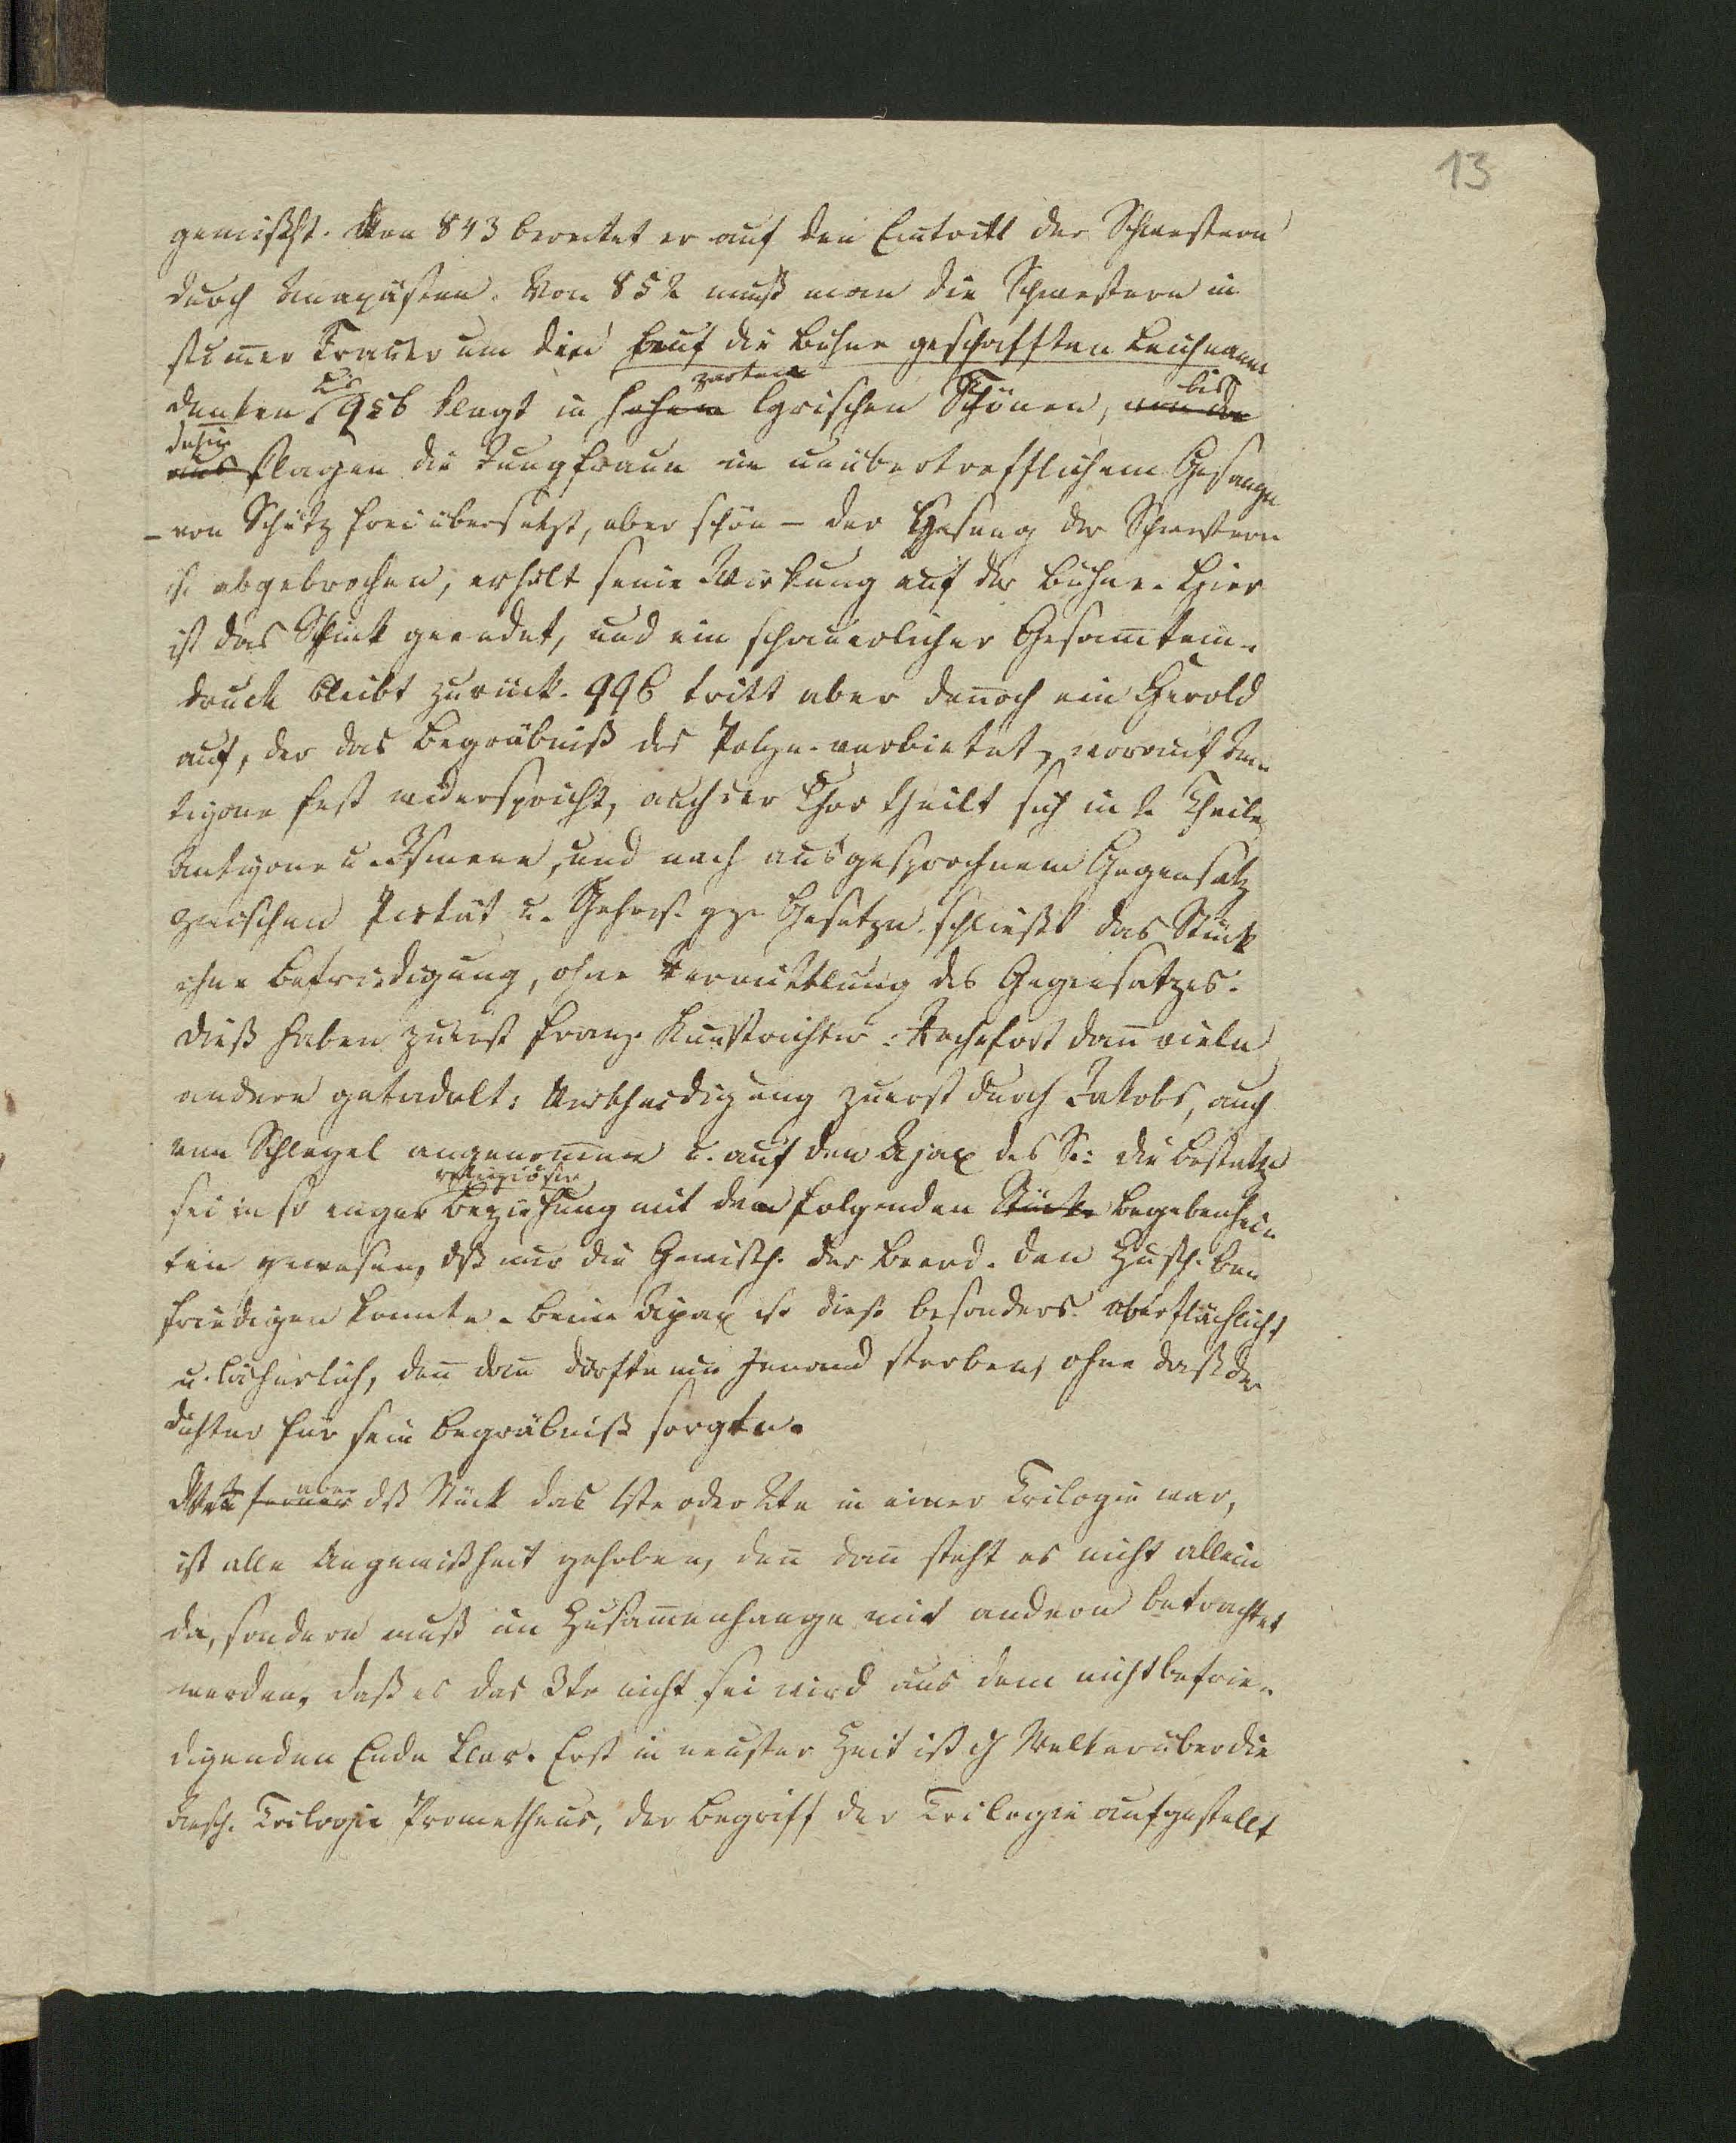 13
gemischt. Von 843 bereitet er auf den Eintritt der Schwestern
durch Anapästen. Von 852 muß man die Schwestern in
stummer Trauer um die auf die Bühne geschafften Leichname
denken bis 956 klagt in hohen zarten lyrischen Tönen, von da bis
aus dahin klagen die Jungfraun in unübertrefflichem Gesange
– von Schütz frei übersetzt, aber schön – der Gesang der Schwestern
ist abgebrochen, erhält seine Wirkung auf der Bühne. Hier
ist das Stück geendet, und ein schauerlicher Gesamtein-
druck bleibt zurück. 996 tritt aber dennoch ein Herold
auf, der das Begräbniß des Polyn. verbietet, worauf An-
tigone fest widerspricht, auch der Chor theilt sich in 2 Theile
Antigone u. Ismene, und nach ausgesprochnem Gegensatz
zwischen Pietät u. Gehors. gg. Gesetze schließt das Stück
ohne Befriedigung, ohne Vermittlung des Gegensatzes.
Dieß haben zuerst franz. Kunstrichter: Rochefort dann viele
andere getadelt: Vertheidigung zuerst durch Jakobs, auch
von Schlegel angenommen u. auf den Ajax des S.: die Bestattg
sei in so enger religiöser Beziehung mit den folgenden Stücke Begebenhei-
ten gewesen, dß nur die Gewißh. der Beerd. den Zusch. be-
friedigen konnte. Beim Ajax ist dieß besonders oberflächlich
u. lächerlich, denn dann dürfte nie Jemand sterben, ohne daß der
Dichter für sein Begräbniß sorgte.
ferner aber dß Stück das 1ste oder 2te in einer Trilogie war,
ist alle Ungewißheit gehoben, denn dann steht es nicht allein
da, sondern muß im Zusammenhange mit andern betrachtet
werden, daß es das 3te nicht sei wird aus dem nicht befrie-
digenden Ende klar. Erst in neuster Zeit ist Welker über die
Aesch. Trilogie Prometheus, der Begriff der Trilogie aufgestellt